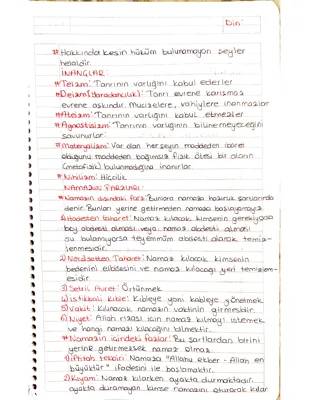 Din
* Hakkında kesin hüküm bulunmayan şeyler
helaldir.
İNANÇLAR:
* Teizm: Tanrının varlığını kabul ederler
* Deizm (Yaradancılık): Tanrı evrene karışmaz
evrene aşkındır. Mucizelere, vahiylere inanmazlar
* Ateizm: Tanrının varlığını kabul etmezler
* Agnostisizm: Tanrının varlığının bilinemeyeceğini
savunurlar.
* Materyalizm: Var olan herşeyin maddeden ibaret
olduğunu maddeden bağımsız fizik ötesi bir alanın
(metafizik) bulunmadığına inanırlar.
* Nihilizm: Hiçcilik
NAMAZIN FARZLARI:
* Namazın dışındaki farz: Bunlara namaza hazırlık şartlarında
denir. Bunları yerine getirmeden namaza başlayamayız
1) Hadesten taharet: Namaz kılacak kimsenin gerekiyorsa
boy abdesti alması veya namaz abdesti alması
su bulamıyorsa teyemmüm abdesti alarak temiz-
lenmesidir.
2) Necasetten Taharet: Namaz kılacak kimsenin
bedenini elbisesini ve namaz kılacağı yeri temizlem-
esidir.
3) Setril Avret: Örtünmek
4) İstikbali Kıble: Kıbleye yani kableye yönetmek
5) Vakit: Kılınacak namazın vaktinin girmesidir.
6) Niyet: Allah rızası için namaz kılmayı istemek
ve hangi namazı kılacağını bilmektir.
* Namazın içindeki farzlar: Bu şartlardan birini
yerine getirmezsek namaz olmaz.
1) İftitah tekbiri: Namaza "Allahu ekber - Allah en
büyüktür" ifadesi ile başlamaktır.
2) Kıyam: Namaz kılarken ayakta durmaktadır.
ayakta duramayan kimse namazını oturarak kılar